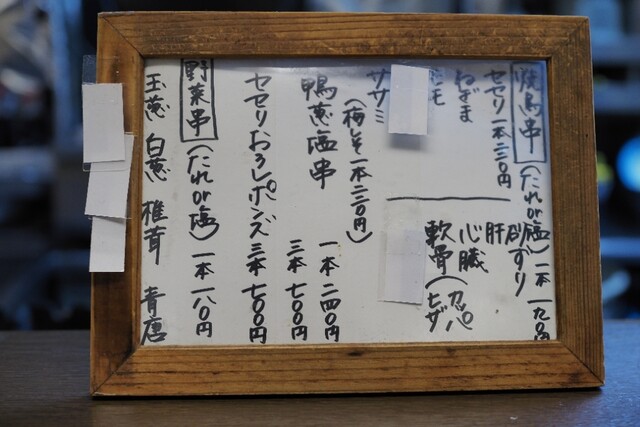 焼鳥串(たれor塩)一本一九〇円
セセリ一本二二〇円
砂ずり
ねぎま
肝
モモ
心臓
軟骨(カッパ
ヒザ
ササミ
(梅しそ一本二二〇円)
鴨葱塩串 一本 二四〇円
三本 七〇〇円
セセリおろしポンズ 三本 七〇〇円
野菜串(たれor塩)一本 一八〇円
玉葱 白葱 椎茸 青唐